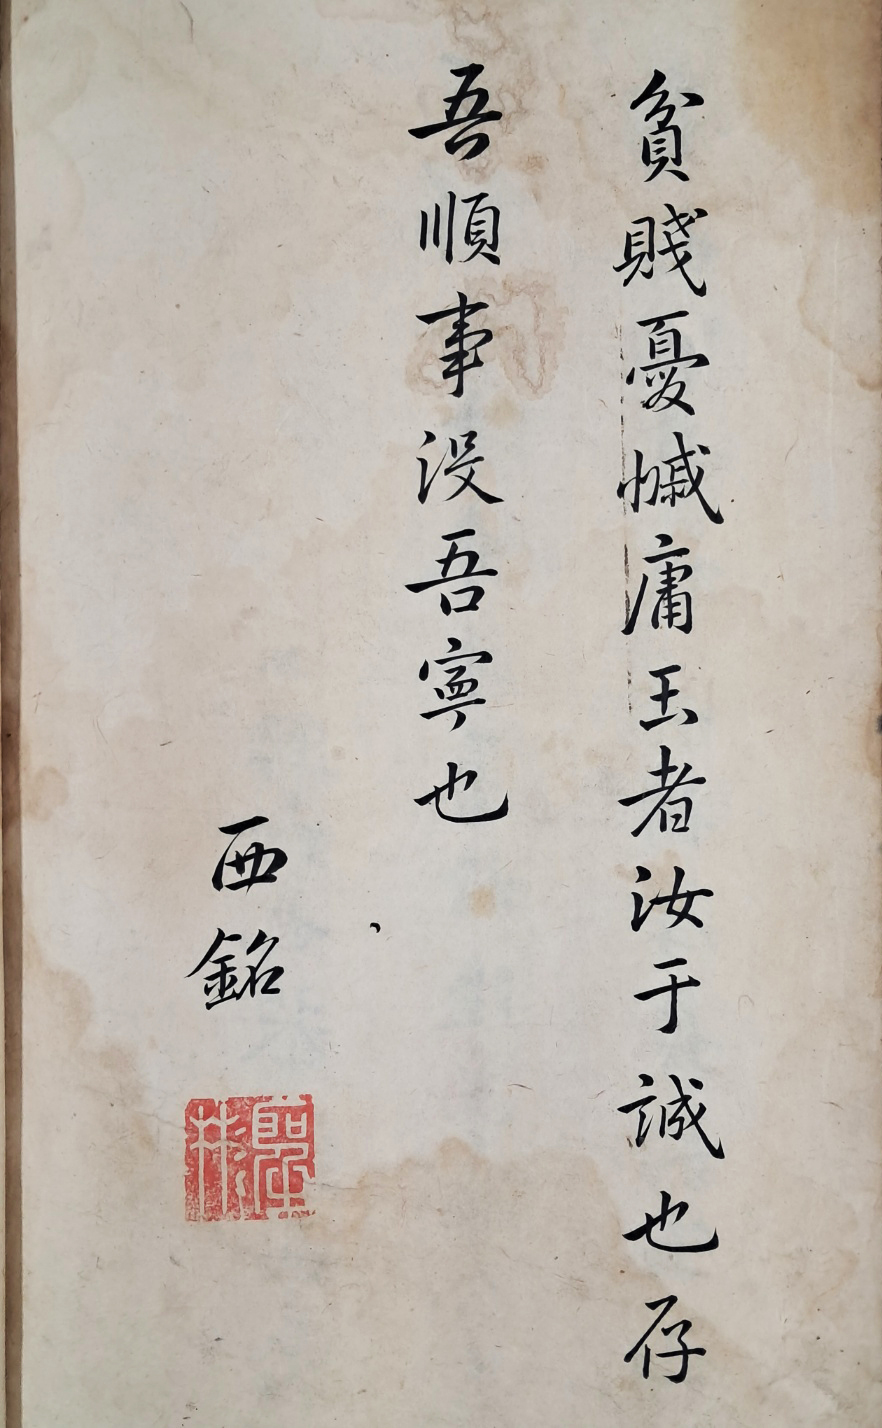 貧賤憂慽庸玉者汝于誠也存
吾順事没吾寧也
西銘